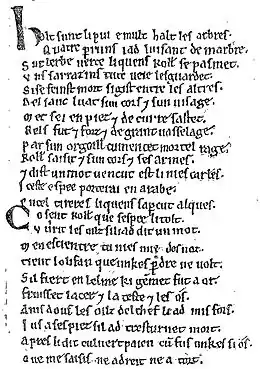 Halt sunt li pui e mult halt les arbres.
Quatre pͥruns iad luisant de marbre.
Sur lerbe uerte li quens Roll̃ se pasmet.
Uns sarrazins tute ueie lesguardet.
Si se feinst mort si gist entre les altres.
Del sanc luat sun cors ⁊ sun uisage.
Met sei en piez ⁊ de curre sastet.
Bels fut ⁊ forz ⁊ de grant uasselage.
Par sun orgoill cumencet mortel rage.
Roll̃ saisit ⁊ sun cors ⁊ ses armes.
⁊ dist un mot uencut est li nies carles.
Iceste espee porterai en arabe.
En cel tireres li quens sap̃cut alques.
Co sent Roll̃ que sespee li tolt.
Uurit les oilz si li ad dit un mot.
Men escientre tu nies mie des noz.
Tient lolifan que unkes p̃dre ne uolt.
Sil fiert en lelme ki gemet fut a or.
Fruisset lacer ⁊ la teste ⁊ les os.
Amsdous les oilz del chef li ad mis fors.
Jus a ses piez si lad tresturnet mort.
Apres li dit culuert paien cũ fus unkes si os.
Que me saisis ne a dreit ne a tort.